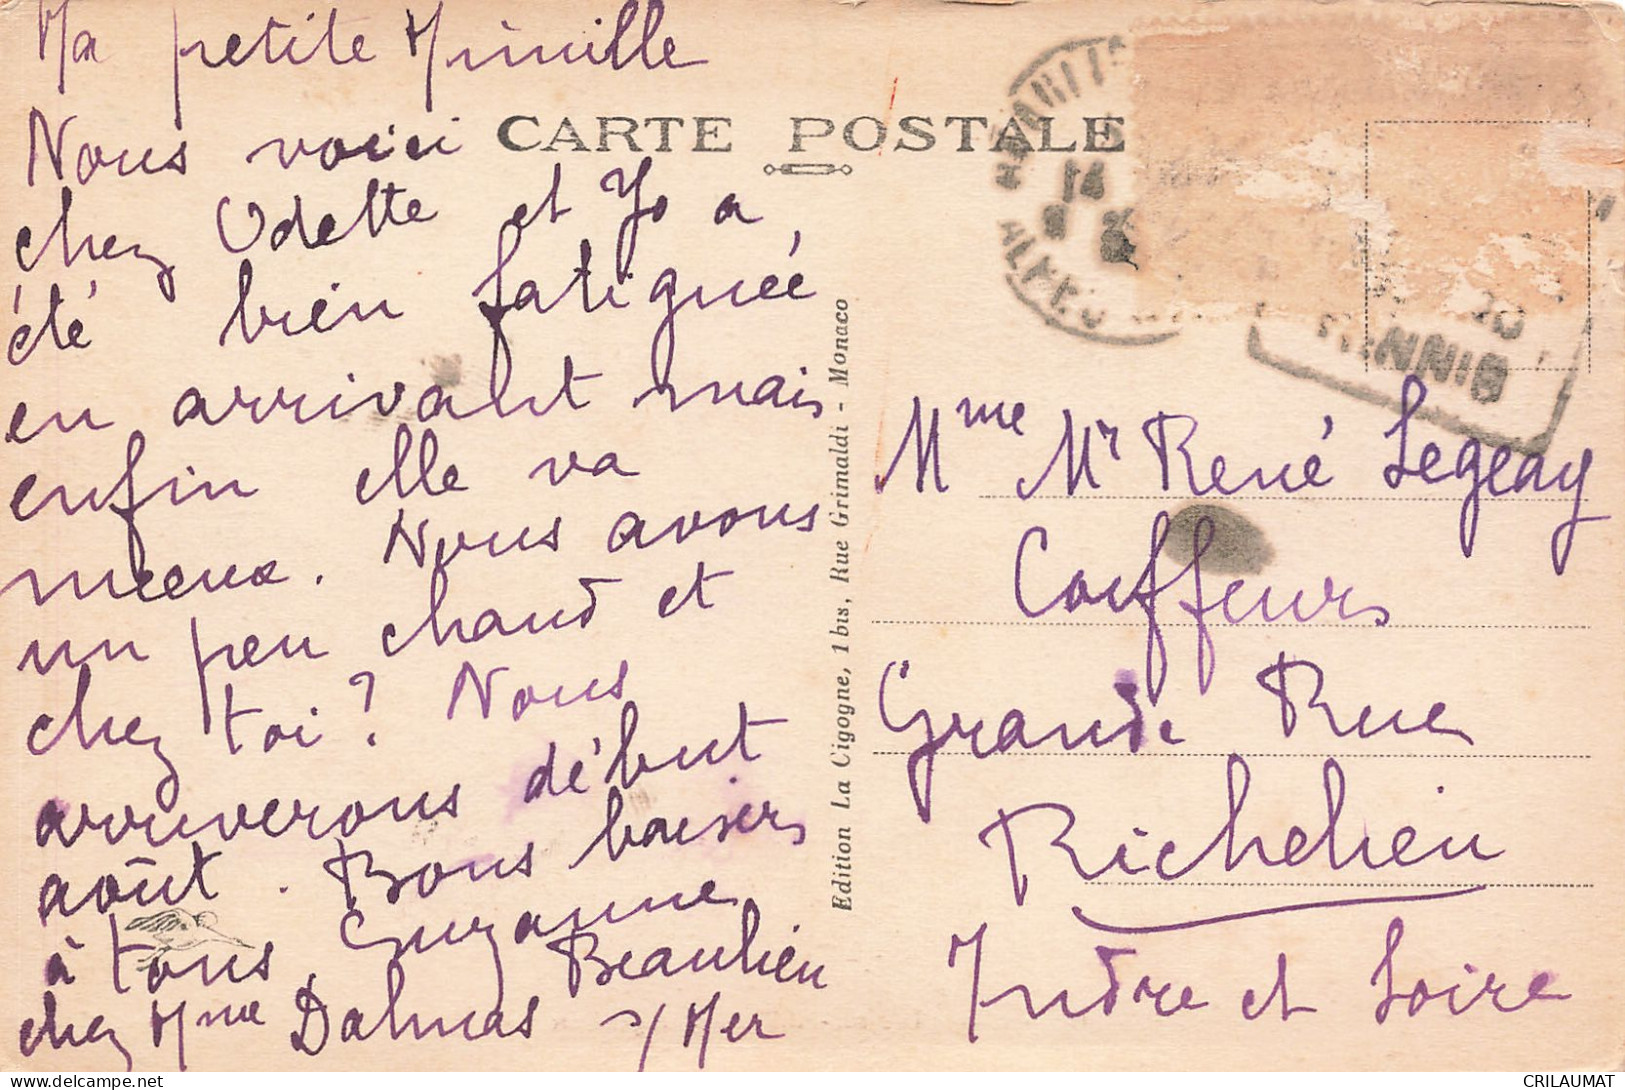 Ma petite Mimille
Nous voici
chez Odette et Yo a
été bien fatiguée
en arrivant mais
enfin elle va
mieux. Nous avons
un peu chaud et
chez toi ? Nous
arriverons début
août. Bons baisers
à tous, Suzanne
chez Mme Dalmas Beaulieu
s/Mer
CARTE POSTALE
Edition La Cigogne, 1 bis, Rue Grimaldi - Monaco
14
Mme Mr René Legeay
Coiffeurs
Grande Rue
Richelieu
Indre et Loire
CRILAUMAT